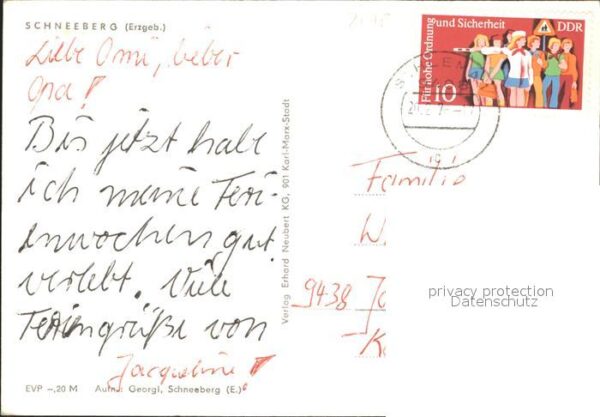 SCHNEEBERG (Erzgeb.)
Liebe Omi, lieber
Opa!
Bis jetzt habe
ich meine Feri-
enwochen gut
verlebt. Viele
Feriengrüße von
Jacqueline!
EVP –,20 M Aufn.: Georgi, Schneeberg (E.)
Verlag Erhard Neubert KG, 901 Karl-Marx-Stadt
Für hohe Ordnung
und Sicherheit
DDR
10
Familie
W
9438 Jo
privacy protection
Datenschutz